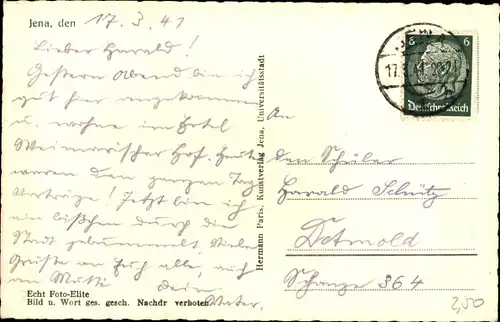 Jena, den 17.3.41
Lieber Harald!
Gestern Abend bin ich
gut hier angekommen
u. wohne im Hotel
Weimarischer Hof. Heute
waren den ganzen Tag
Vorträge! Jetzt bin ich
ein bißchen durch die
Stadt gebummelt. Viele
Grüße an Euch alle, auch
an Mutti Dein
Vater.
Echt Foto-Elite
Bild u. Wort ges. gesch. Nachdr verboten
Hermann Paris, Kunstverlag Jena, Universitätsstadt
6 6
Deutsches Reich
17.3.41
An
den Schüler
Harald Schütz
Detmold
Schanze 364
2,50